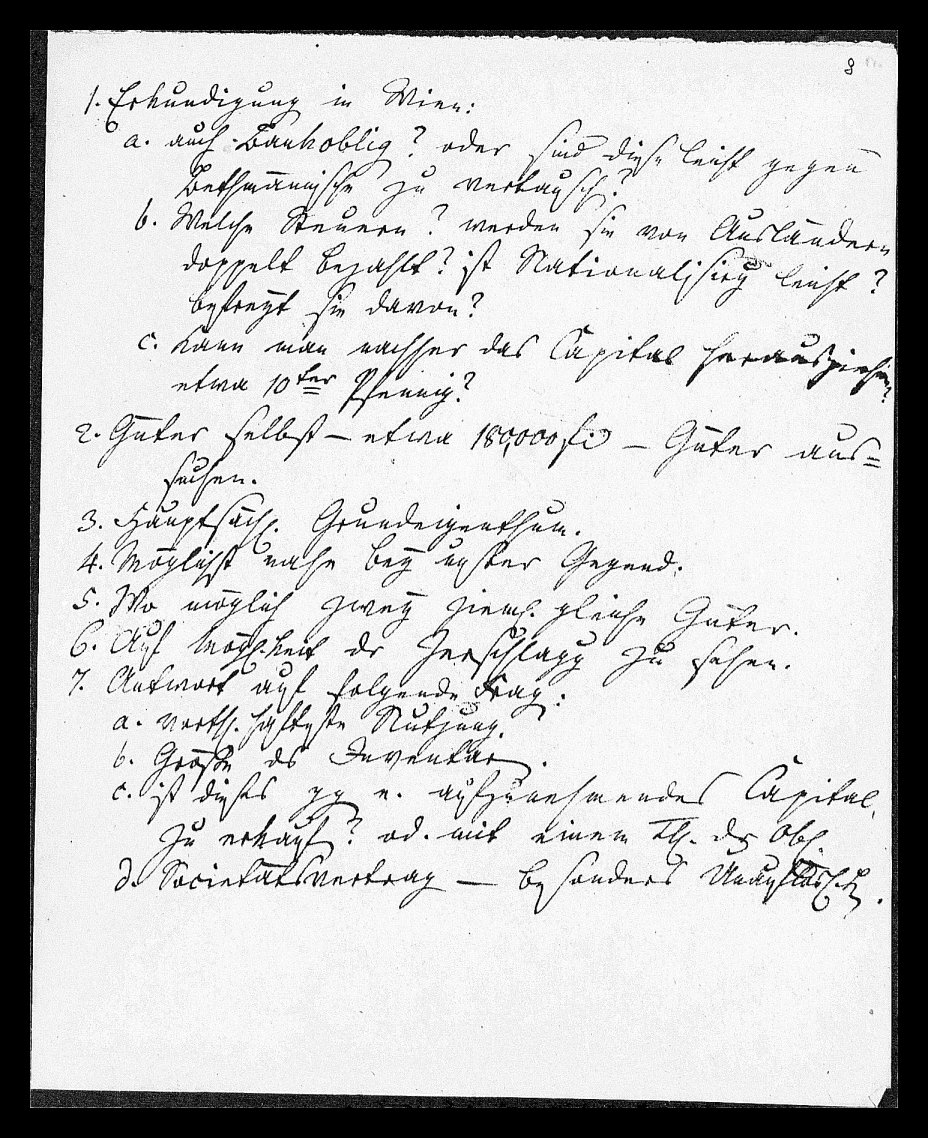 8
1. Erkundigung in Wien:
a. auch Bankoblig? oder sind diese leicht gegen
Bethmännische zu vertausch?
b. Welche Steuern? werden sie von Ausländern
doppelt bezahlt? ist Nationalisirg leicht?
befreyt sie davon?
c. kann man nachher das Capital herausziehen?
etwa 10ter Pfennig?
2. Güter selbst – etwa 180,000 fl – Güter aus=
suchen.
3. Hauptsächl. Grundeigenthum.
4. Möglichst nahe bey unsrer Gegend.
5. Wo möglich zwey zieml. gleiche Güter.
6. Auf Möglichkeit der Zerschlagg zu sehen.
7. Antwort auf folgende Frag:
a. vortheilhafteste Nutzung.
b. Größe ds Inventar.
c. ist dieses pp e. aufzunehmendes Capital,
zu erkauf? od. mit einem Thl. der Obl.
d. Societätsvertrag – besonders Unauflöslkt.